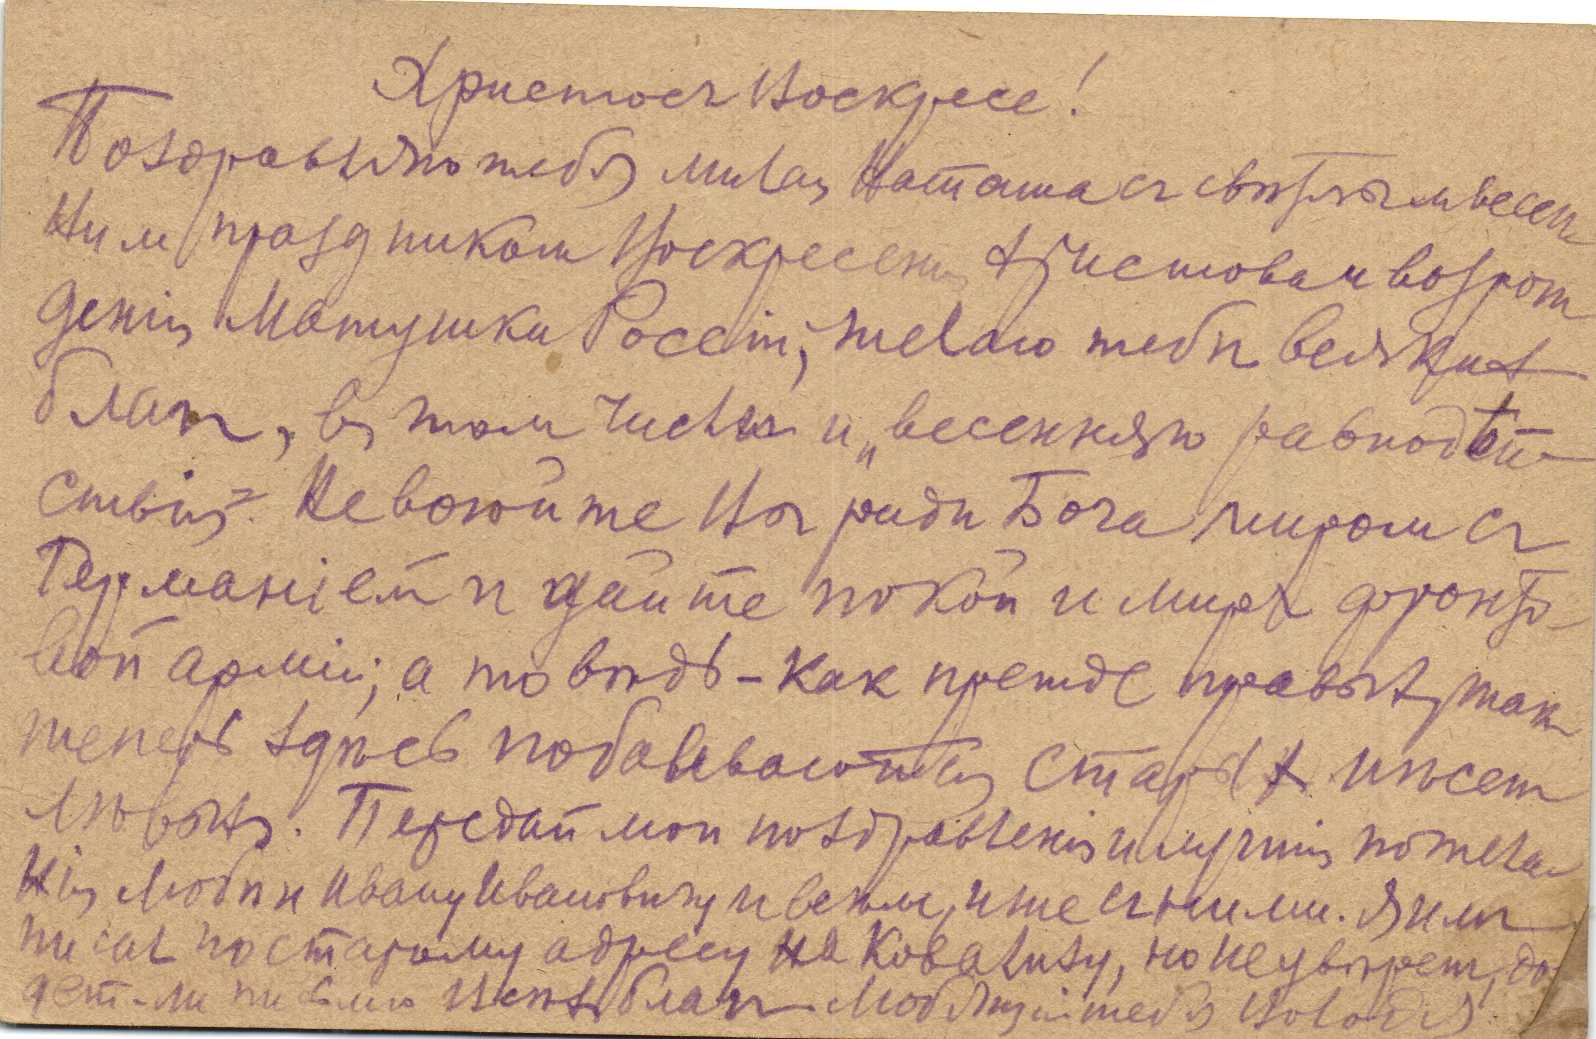 Христосъ Воскресе!
Поздравляю тебя милая Наташа съ свѣтлым весен
ним праздником Воскресенія Христова и возрож
денія Матушки Россіи, желаю тебѣ всяких
благъ, въ том числѣ и „весенняго равноден
ствія". Не воюйте Вы ради Бога миром съ
Германіей и дайте покой и миръ фронто-
вой арміи; а то вѣдь - как прежде правых, так
теперь здѣсь побаиваются старых и
лѣвых. Передай мои поздравленія и лучшія пожела
нія Любѣ и Ивану Ивановичу и всѣм, иже съ ними. Я им
писал по старому адресу на Ковалиху, но не увѣрен, до
дет-ли письмо Всѣх благъ Любящій тебя Володя